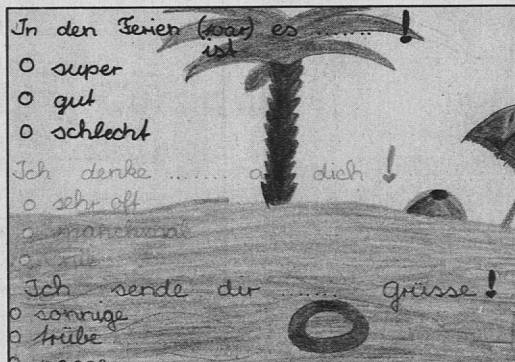 In den Ferien (war) es ........ !
ist
○ super
○ gut
○ schlecht
Ich denke ....... an dich !
○ sehr oft
○ manchmal
○ nie
Ich sende dir ....... grüsse !
○ sonnige
○ trübe